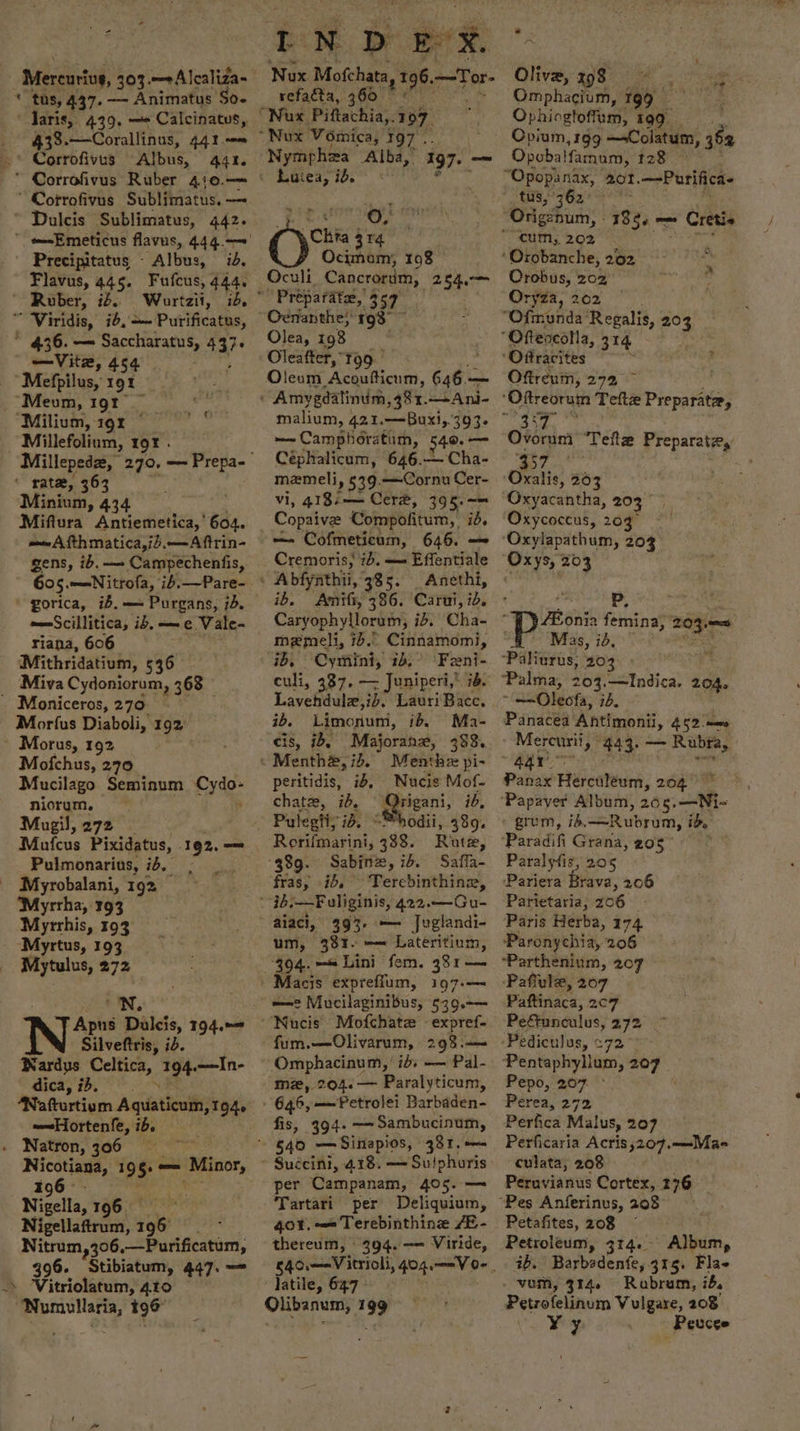 INDEX.
Mercurius, 303.—Alcaliza-
tus, 437. — Animatus So-
laris, 439. — Calcinatus,
438.—Corallinus, 441 —
Corrosivus Albus, 441.
Corrosivus Ruber 440.—
Corrosivus Sublimatus. —
Dulcis Sublimatus, 442.
—Emeticus flavus, 444.—
Precipitatus Albus, ib.
Flavus, 445. Fuscus, 444.
Ruber, ib. Wurtzii, ib.
Viridis, ib. — Purificatus,
436. — Saccharatus, 437.
—Vitæ, 454
Mespilus, 191
Meum, 191
Milium, 191
Millefolium, 191.
Millepedæ, 270. — Prepa-
ratæ, 363
Minium, 434
Mistura Antiemetica, 604.
—Asthmatica, ib.—Astrin-
gens, ib. — Campechensis,
605.—Nitrosa, ib.—Pare-
gorica, ib. — Purgans, ib.
—Scillitica, ib. — e Vale-
riana, 606
Mithridatium, 536
Miva Cydoniorum, 368
Moniceros, 270
Morsus Diaboli, 192
Morus, 192
Moschus, 270
Mucilago Seminum Cydo-
niorum.
Mugil, 272
Muscus Pixidatus, 192. —
Pulmonarius, ib.
Myrobalani, 192
Myrrha, 193
Myrrhis, 193
Myrtus, 193
Mytulus, 272
N.
NApus Dulcis, 194.—
Silvestris, ib.
Nardus Celtica, 194.—In-
dica, ib.
Nasturtium Aquaticum, 194.
—Hortense, ib.
Natron, 306
Nicotiana, 195. — Minor,
196
Nigella, 196
Nigellastrum, 196
Nitrum, 306.—Purificatum,
396. Stibiatum, 447. —
Vitriolatum, 410
Numullaria, 196
Nux Moschata, 196.—Tor-
refacta, 360
Nux Pistachia, 197
Nux Vomica, 197
Nymphæa Alba, 197. —
Lutea, ib.
O.
OChra 314
Ocimum, 198
Oculi Cancrorum, 254.—
Preparatæ, 357
Oenanthe, 198
Olea, 198
Oleaster, 199
Oleum Acousticum, 646 —
Amygdalinum, 381.—Ani-
malium, 421.—Buxi, 393.
— Camphoratum, 540. —
Cephalicum, 646.—Cha-
mæmeli, 539.—Cornu Cer-
vi, 418.— Ceræ, 395.—
Copaivæ Compositum, ib.
— Cosmeticum, 646. —
Cremoris, ib. — Essentiale
Absynthii, 385. Anethi,
ib. Anisi, 386. Carui, ib.
Caryophyllorum, ib. Cha-
mæmeli, ib. Cinnamomi,
ib. Cymini, ib. Fœni-
culi, 387. — Juniperi, ib.
Lavendulæ, ib. Lauri Bacc.
ib. Limonum, ib. Ma-
cis, ib. Majoranæ, 388.
Menthæ, ib. Menthæ pi-
peritidis, ib. Nucis Mos-
chatæ, ib. Origani, ib.
Pulegii, ib. Rhodii, 389.
Rorismarini, 388. Rutæ,
389. Sabinæ, ib. Sassa-
fras, ib. Terebinthinæ,
ib.—Fuliginis, 422.—Gu-
aiaci, 393. — Juglandi-
um, 381. — Lateritium,
394. — Lini sem. 381 —
Macis expressum, 197.—
— Mucilaginibus, 539.—
Nucis Moschatæ expres-
sum.—Olivarum, 298.—
Omphacinum, ib. — Pal-
mæ, 204. — Paralyticum,
646, — Petrolei Barbaden-
sis, 394. — Sambucinum,
540 — Sinapios, 381. —
Succini, 418. — Sulphuris
per Campanam, 405. —
Tartari per Deliquium,
401. — Terebinthinæ Æ-
thereum, 394. — Viride,
540.—Vitrioli, 404.—Vo-
latile, 647
Olibanum, 199
Olivæ, 198
Omphacium, 199
Ophioglossum, 199
Opium, 199 —Colatum, 362
Opobalsamum, 128
Opopanax, 201.—Purifica-
tus, 362
Origanum, 185. — Creti-
cum, 202
Orobanche, 202
Orobus, 202
Oryza, 202
Osmunda Regalis, 203
Osteocolla, 314
Ostracites
Ostreum, 272
Ostreorum Testæ Preparatæ,
357
Ovorum Testæ Preparatæ,
357
Oxalis, 203
Oxyacantha, 203
Oxycoccus, 203
Oxylapathum, 203
Oxys, 203
P.
PÆonia femina, 203.—
Mas, ib.
Paliurus, 203
Palma, 203.—Indica. 204.
—Oleosa, ib.
Panacea Antimonii, 452 —
Mercurii, 443. — Rubra,
441
Panax Herculeum, 204
Papaver Album, 205.—Ni-
grum, ib.—Rubrum, ib.
Paradisi Grana, 205
Paralysis, 205
Pariera Brava, 206
Parietaria, 206
Paris Herba, 174
Paronychia, 206
Parthenium, 207
Passulæ, 207
Pastinaca, 207
Pectunculus, 272
Pediculus, 272
Pentaphyllum, 207
Pepo, 207
Perea, 272
Persica Malus, 207
Persicaria Acris, 207.—Ma-
culata, 208
Peruvianus Cortex, 176
Pes Anserinus, 208
Petasites, 208
Petroleum, 314. Album,
ib. Barbadense, 315. Fla-
vum, 314. Rubrum, ib.
Petroselinum Vulgare, 208
Y y Peuceæ